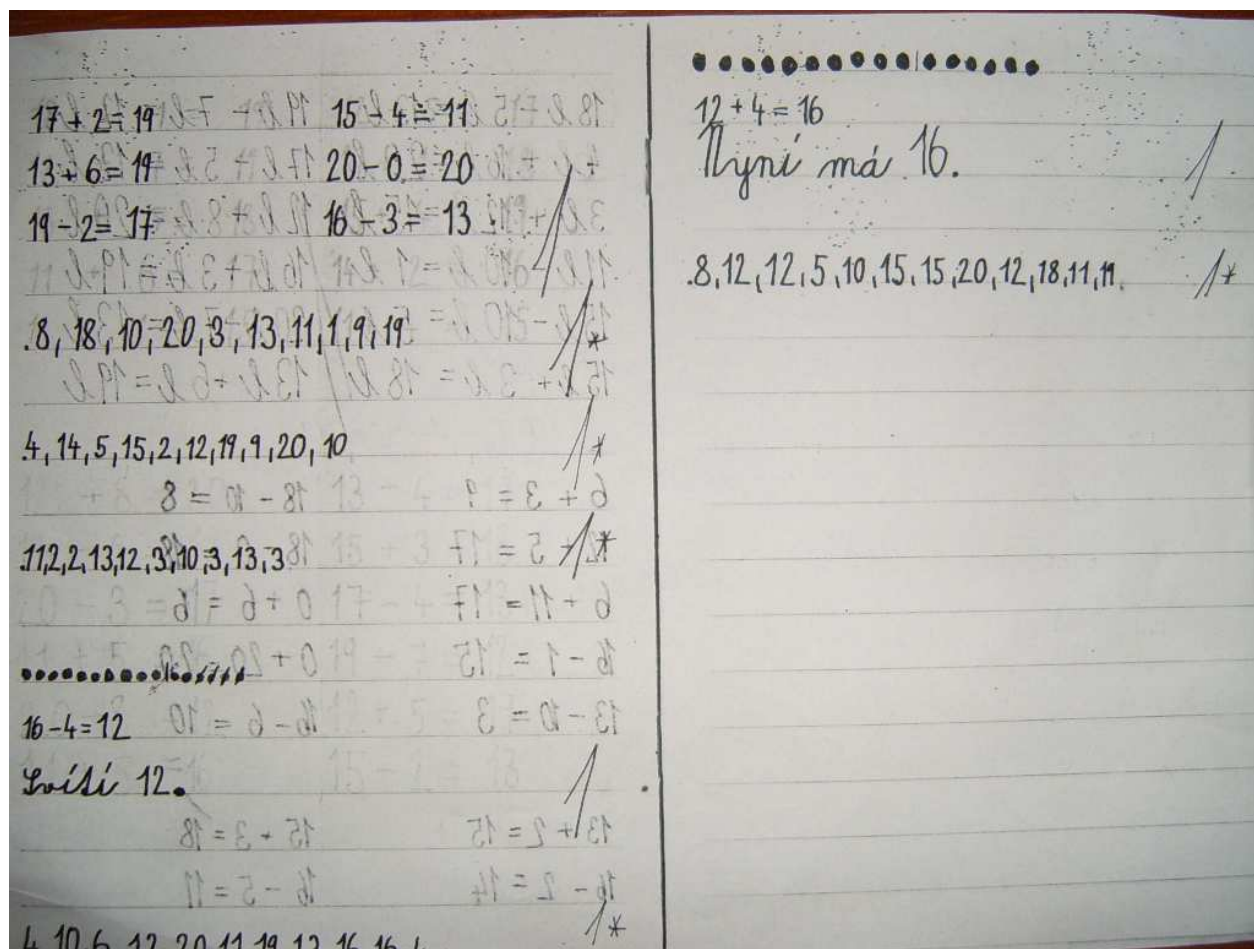 17 + 2 = 19 15 - 4 = 11
13 + 6 = 19 20 - 0 = 20
19 - 2 = 17 16 - 3 = 13
.8, 18, 10, 20, 3, 13, 11, 1, 9, 19 1*
.4, 14, 5, 15, 2, 12, 19, 9, 20, 10 1*
.11, 2, 2, 13, 12, 3, 10, 3, 13, 3 1*
16 - 4 = 12
Svítí 12. 1
4, 10, 6, 12, 20, 11, 19, 12, 16, 16, 4 1*
12 + 4 = 16
Nyní má 16. 1
.8, 12, 12, 5, 10, 15, 15, 20, 12, 18, 11, 11 1*